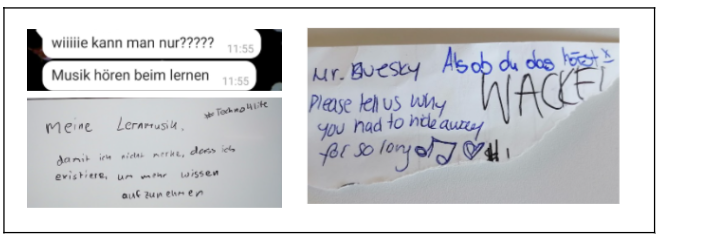 wiiiiie kann man nur?????
11:55
Musik hören beim lernen
11:55
#Techno4life
Meine Lernmusik.
damit ich nicht merke, dass ich
existiere, um mehr wissen
aufzunehmen
Als ob du das hörst
Mr. Buesky
WACKEL
Please tell us why
you had to hide away
for so long